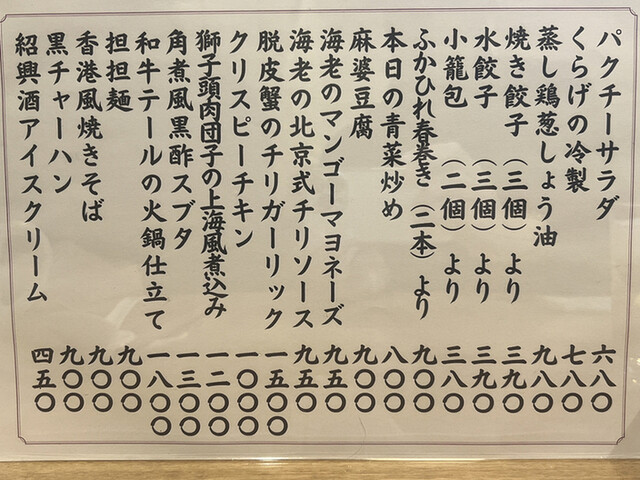 パクチーサラダ 六八〇
くらげの冷製 七八〇
蒸し鶏葱しょう油 九八〇
焼き餃子(三個)より 三九〇
水餃子(三個)より 三九〇
小籠包(二個)より 三八〇
ふかひれ春巻き(二本)より 九〇〇
本日の青菜炒め 八〇〇
麻婆豆腐 九〇〇
海老のマンゴーマヨネーズ 九五〇
海老の北京式チリソース 九五〇
脱皮蟹のチリガーリック 一五〇〇
クリスピーチキン 一〇〇〇
獅子頭肉団子の上海風煮込み 一二〇〇
角煮風黒酢スブタ 一三〇〇
和牛テールの火鍋仕立て 一八〇〇
担担麺 九〇〇
香港風焼きそば 九〇〇
黒チャーハン 九〇〇
紹興酒アイスクリーム 四五〇